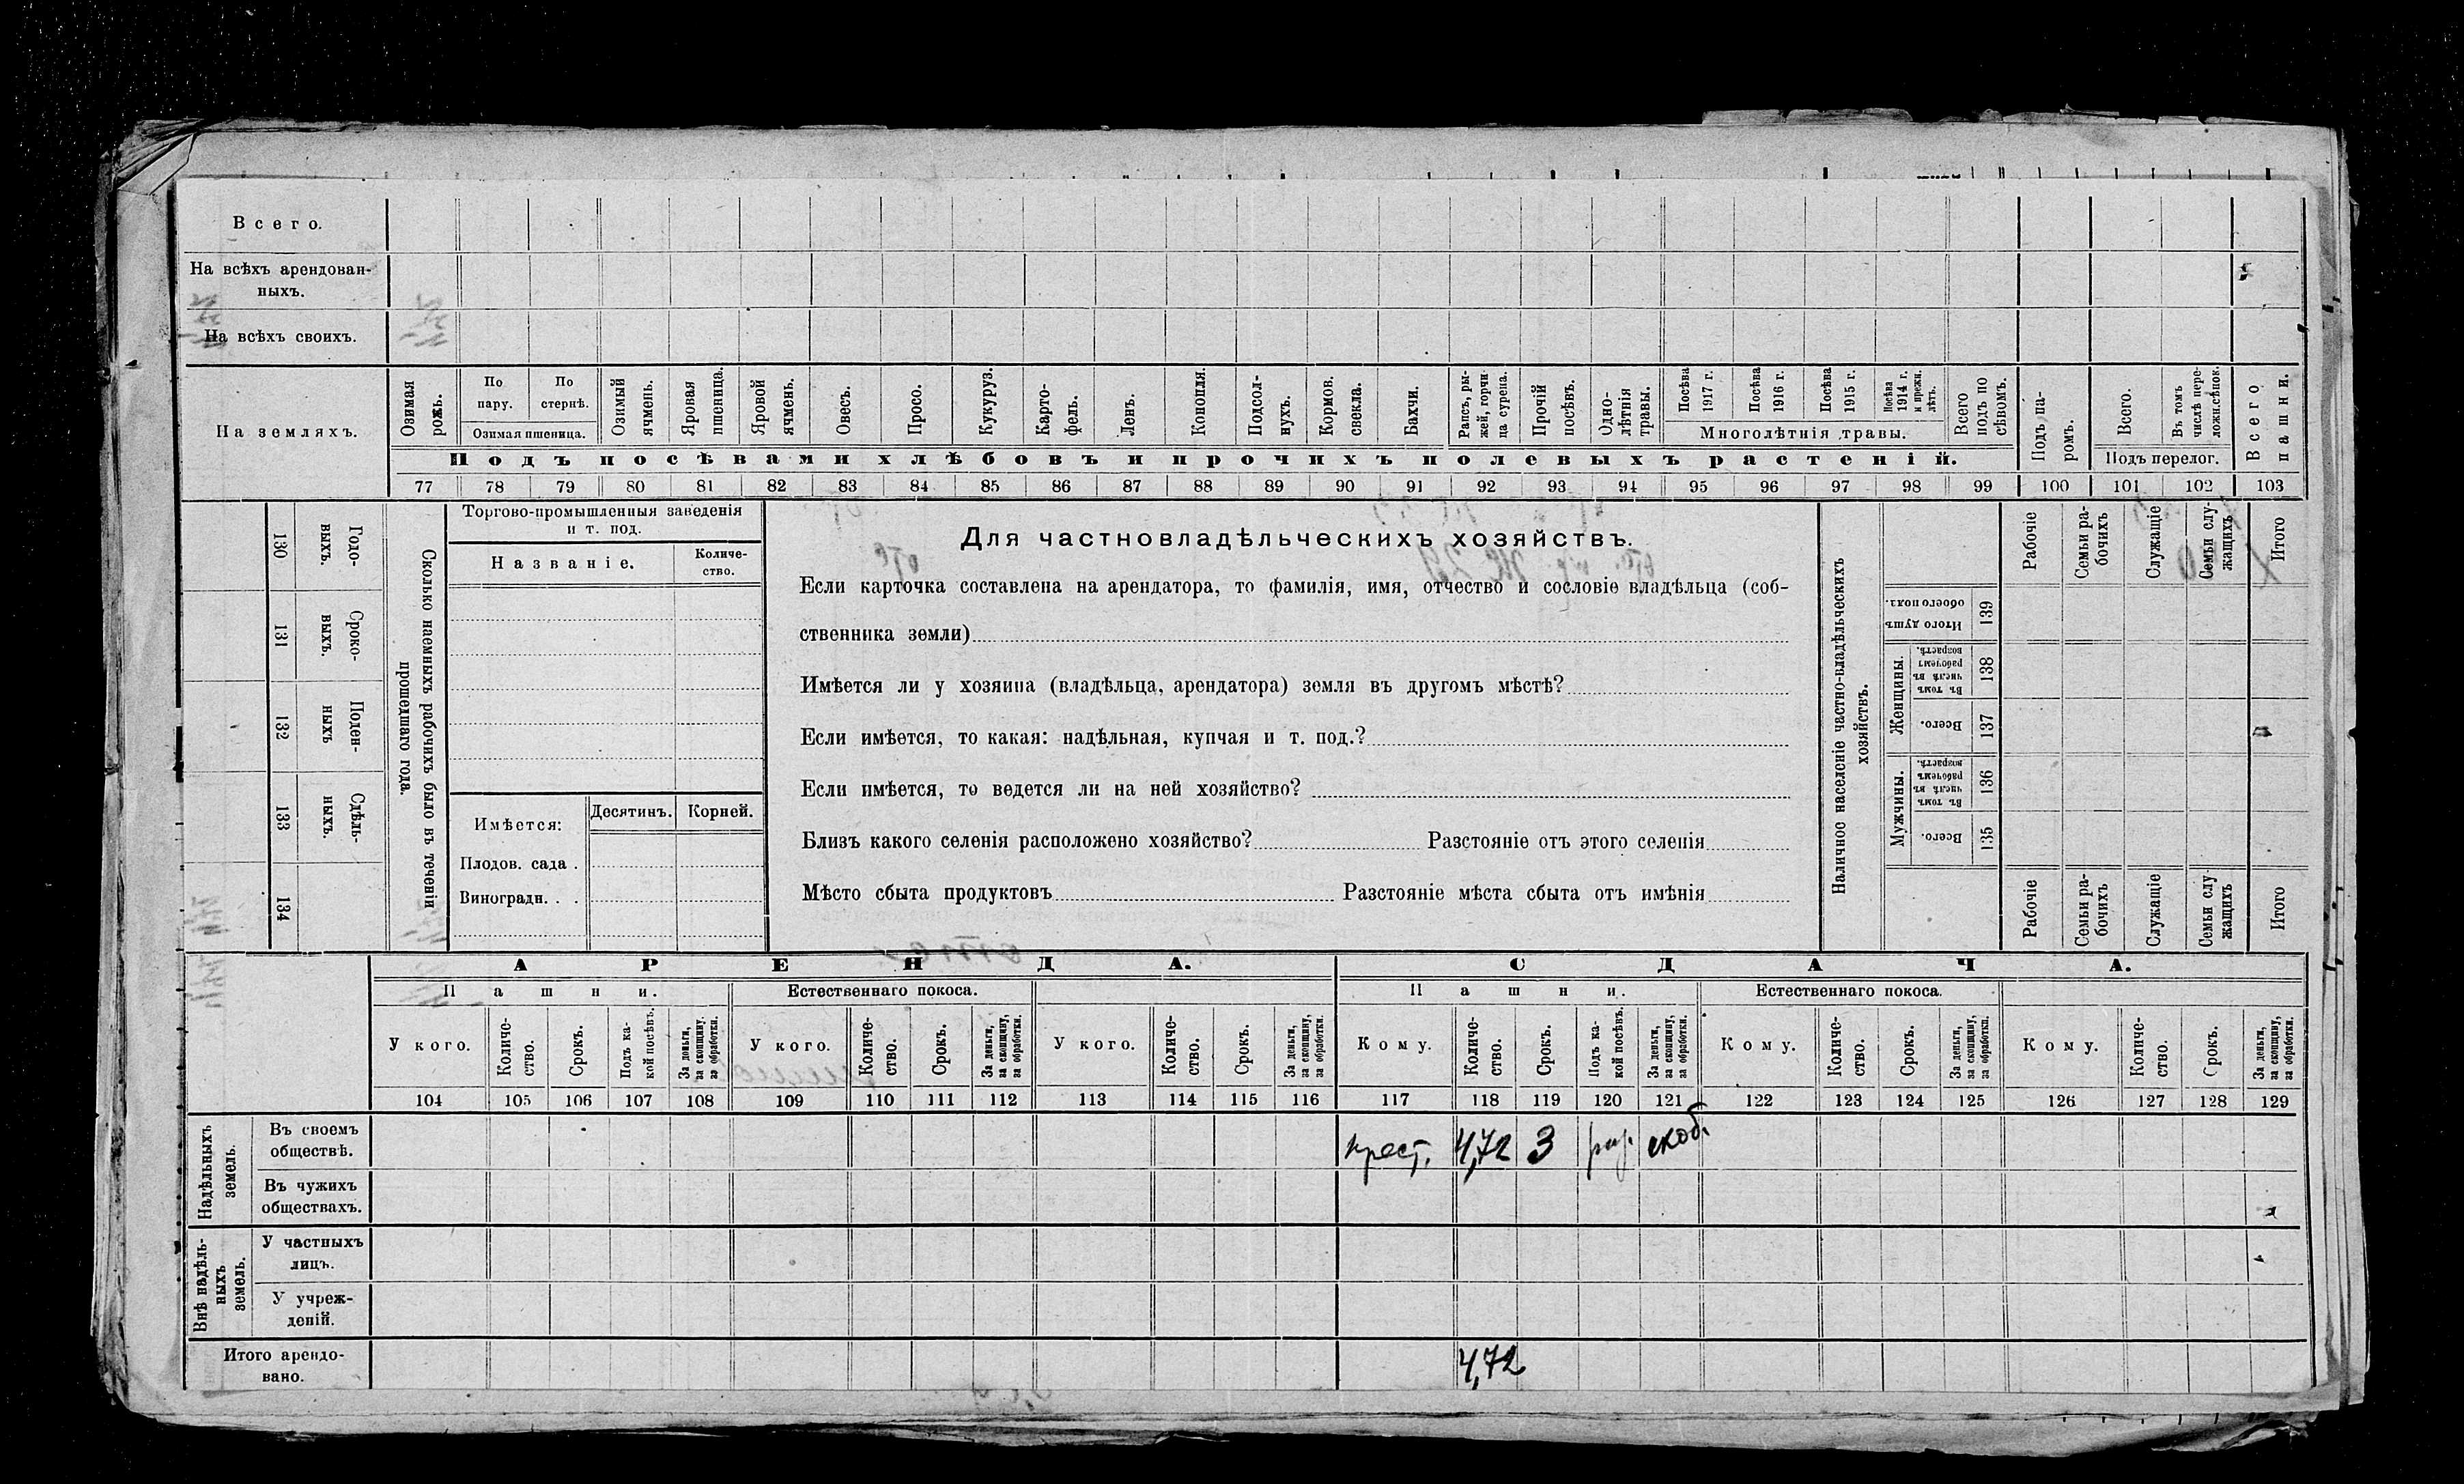 Всего.
На всѣхъ арендован-
ныхъ.
На всѣхъ своихъ.
На земляхъ.
Озимая рожь.
По пару.
По стернѣ.
Озимая пшеница.
Озимый ячмень.
Яровая пшеница.
Яровой ячмень.
Овесъ.
Просо.
Кукуруз.
Карто-
фель.
Ленъ.
Конопля.
Подсол-
нухъ.
Кормов. свекла.
Бахчи.
Рапсъ, ры-
жей, горчи-
ца сурепа.
Прочій посѣвъ.
Одно-
лѣтнія
травы.
Посѣва 1917 г.
Посѣва 1916 г.
Посѣва 1915 г.
Посѣва 1914 г. и прежн. лѣтъ.
Многолѣтнія травы.
Всего подъ по
сѣвомъ.
Подъ посѣвами хлѣбовъ и прочихъ полевыхъ растеній.
Подъ па-
ромъ.
Всего.
Въ томъ числѣ пере-
ложн.сѣнок.
Подъ перелог.
Всего пашни.
77 78 79 80 81 82 83 84 85 86 87 88 89 90 91 92 93 94 95 96 97 98 99 100 101 102 103
130 Годо-
выхъ.
131 Сроко-
выхъ.
132 Поден-
ныхъ
133 Сдѣль-
ныхъ.
134
Сколько наемныхъ рабочихъ было въ теченіи
прошедшаго года.
Торгово-промышленныя заведенія
и т. под.
Названіе.
Количе-
ство.
Имѣется:
Десятинъ.
Корней.
Плодов. сада .
Виноградн. . .
Для частновладѣльческихъ хозяйствъ.
Если карточка составлена на арендатора, то фамилія, имя, отчество и сословіе владѣльца (соб-
ственника земли)
Имѣется ли у хозяина (владѣльца, арендатора) земля въ другомъ мѣстѣ?
Если имѣется, то какая: надѣльная, купчая и т. под.?
Если имѣется, то ведется ли на ней хозяйство?
Близъ какого селенія расположено хозяйство? Разстояніе отъ этого селенія
Мѣсто сбыта продуктовъ Разстояніе мѣста сбыта отъ имѣнія
Наличное населеніе частно-владѣльческихъ
хозяйствъ.
Рабочіе
Семьи ра-
бочихъ
Служащіе
Семьи слу-
жащихъ
Итого
Итого душъ
обоего пола.
139
Женщины.
Въ томъ числѣ въ рабочемъ возрастѣ.
138
Всего.
137
Мужчины.
Въ томъ числѣ въ рабочемъ возрастѣ.
136
Всего.
135
Рабочіе
Семьи ра-
бочихъ
Служащіе
Семьи слу
жащихъ
Итого
АРЕНДА.
СДАЧА.
Пашни.
Естественнаго покоса.
Пашни.
Естественнаго покоса.
У кого.
Количе-
ство.
Срокъ.
Подъ ка-
кой посѣвъ.
За деньги, за скопщину, за обработки.
У кого.
Количе-
ство.
Срокъ.
За деньги, за скопщину, за обработки.
У кого.
Количе-
ство.
Срокъ.
За деньги, за скопщину, за обработки.
Кому.
Количе-
ство.
Срокъ.
Подъ ка-
кой посѣвъ.
За деньги, за скопщину, за обработки.
Кому.
Количе-
ство.
Срокъ.
За деньги, за скопщину, за обработки.
Кому.
Количе-
ство.
Срокъ.
За деньги, за скопщину, за обработки.
104 105 106 107 108 109 110 111 112 113 114 115 116 117 118 119 120 121 122 123 124 125 126 127 128 129
Надѣльныхъ
земель.
Въ своемъ
обществѣ.
крест. 4,72 3
Въ чужихъ
обществахъ.
Внѣ надѣль-
ныхъ
земель.
У частныхъ
лицъ.
У учреж-
деній.
Итого арендо-
вано.
4,72